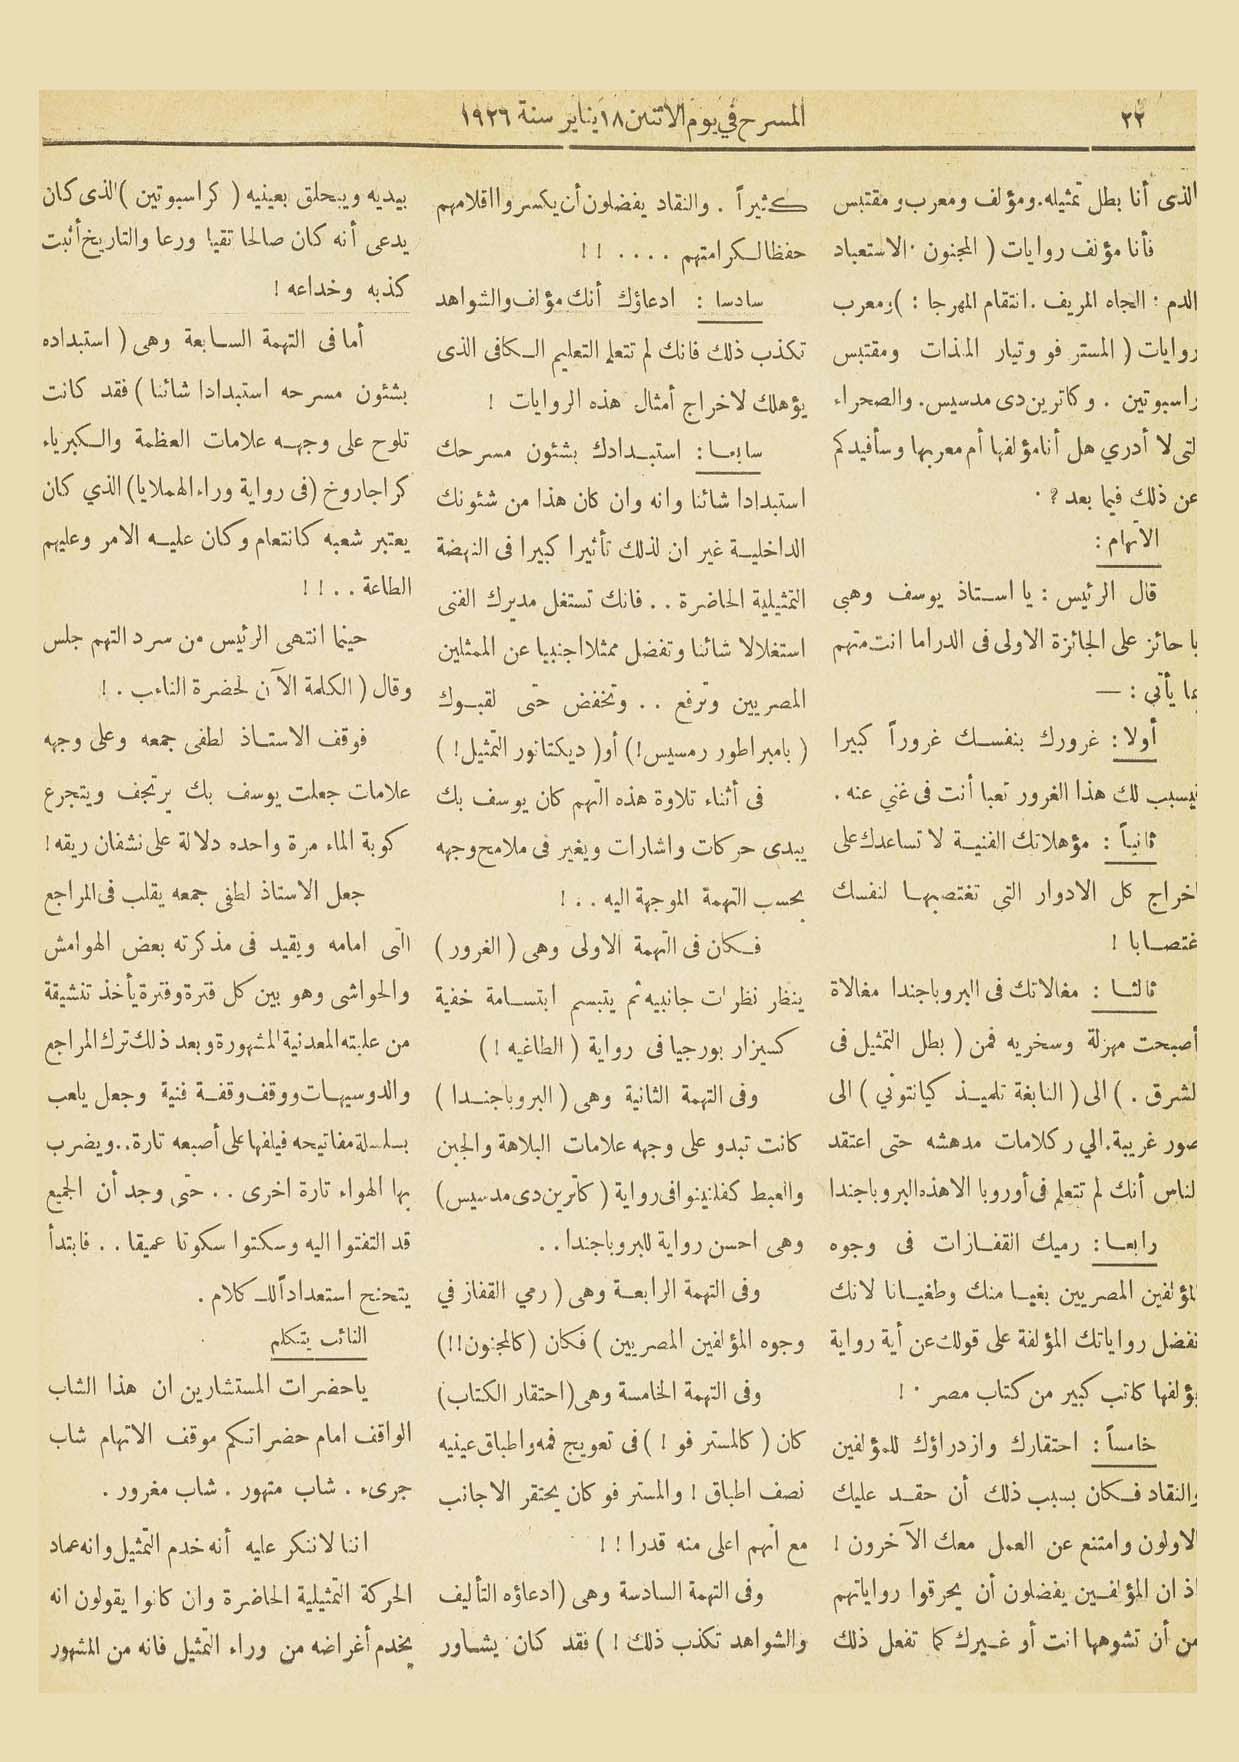 ٢٢
المسرح في يوم الاثنين ١٨ يناير سنة ١٩٢٦
الذى أنا بطل تمثيله. ومؤلف ومعرب ومقتبس
فأنا مؤلف روايات ( المجنون . الاستعباد
الدم . الجاه المزيف . انتقام المهرجا : ) ومعرب
روايات ( المستر فو وتيار الملذات ومقتبس
راسبوتين . وكاترين دى مدسيس. والصحراء
لتى لا أدري هل أنا مؤلفها أم معربها وسأفيدكم
عن ذلك فيما بعد ? .
الاتهام :
قال الرئيس : يا استاذ يوسف وهبى
يا حائز على الجائزة الاولى فى الدراما انت متهم
بما يأتى : —
أولا : غرورك بنفسك غروراً كبيرا
يسبب لك هذا الغرور تعبا أنت فى غني عنه .
ثانياً : مؤهلاتك الفنية لا تساعدك على
اخراج كل الادوار التى تغتصبها لنفسك
غتصابا !
ثالثا : مغالاتك فى البروباجندا مغالاة
أصبحت مهزلة وسخريه فمن ( بطل التمثيل فى
لشرق . ) الى ( النابغة تلميذ كيانتونى ) الى
صور غريبة. الي ركلامات مدهشه حتى اعتقد
لناس أنك لم تتعلم فى أوروبا الا هذه البروباجندا
رابعا : رميك القفازات فى وجوه
لمؤلفين المصريين بغيا منك وطغيانا لانك
تفضل رواياتك المؤلفة على قولك عن أية رواية
يؤلفها كاتب كبير من كتاب مصر . !
خامساً : احتقارك وازدراؤك للمؤلفين
والنقاد فكان بسبب ذلك أن حقد عليك
الاولون وامتنع عن العمل معك الآخرون !
اذ ان المؤلفين يفضلون أن يحرقوا رواياتهم
من أن تشوهها انت أو غيرك كما تفعل ذلك
كثيراً . والنقاد يفضلون أن يكسروا اقلامهم
حفظا لكرامتهم . . . . ! !
سادسا : ادعاؤك أنك مؤلف والشواهد
تكذب ذلك فانك لم تتعلم التعليم الكافى الذى
يؤهلك لاخراج أمثال هذه الروايات !
سابعا : استبدادك بشئون مسرحك
استبدادا شائنا وانه وان كان هذا من شئونك
الداخلية غير ان لذلك تأثيرا كبيرا فى النهضة
التمثيلية الحاضرة . . فانك تستغل مديرك الفنى
استغلالا شائنا وتفضل ممثلا اجنبيا عن الممثلين
المصريين وترفع . . وتخفض حتى لقبوك
( بامبراطور رمسيس! ) أو ( ديكتاتور التمثيل! )
فى أثناء تلاوة هذه التهم كان يوسف بك
يبدى حركات واشارات ويغير فى ملامح وجهه
بحسب التهمة الموجهة اليه . . !
فكان فى التهمة الاولى وهى ( الغرور )
ينظر نظرات جانبيه ثم يتبسم ابتسامة خفية
كسيزار بورجيا فى رواية ( الطاغيه ! )
وفى التهمة الثانية وهى ( البروباجندا )
كانت تبدو على وجهه علامات البلاهة والجبن
والعبط كفلانينوا فى رواية ( كاترين دى مدسيس)
وهى احسن رواية للبروباجندا . .
وفى التهمة الرابعة وهى ( رمي القفاز في
وجوه المؤلفين المصريين ) فكان (كالمجنون!!)
وفى التهمة الخامسة وهى (احتقار الكتاب)
كان ( كالمستر فو ! ) فى تعويج فمه واطباق عينيه
نصف اطباق ! والمستر فو كان يحتقر الاجانب
مع انهم اعلى منه قدرا ! !
وفى التهمة السادسة وهى (ادعاؤه التأليف
والشواهد تكذب ذلك ! ) فقد كان يشاور
بيديه ويبحلق بعينيه ( كراسبوتين ) الذى كان
يدعى أنه كان صالحا تقيا ورعا والتاريخ أثبت
كذبه وخداعه !
أما فى التهمة السابعة وهى ( استبداده
بشئون مسرحه استبدادا شائنا ) فقد كانت
تلوح على وجهه علامات العظمة والكبرياء
كراجاروخ (فى رواية وراء الهملايا) الذي كان
يعتبر شعبه كانتعام وكان عليه الامر وعليهم
الطاعة . . ! !
حينما انتهى الرئيس من سرد التهم جلس
وقال ( الكلمة الآن لحضرة النائب . !
فوقف الاستاذ لطفى جمعه وعلى وجهه
علامات جعلت يوسف بك يرتجف ويتجرع
كوبة الماء مرة واحده دلالة على نشفان ريقه !
جعل الاستاذ لطفى جمعه يقلب فى المراجع
التى امامه ويقيد فى مذكرته بعض الهوامش
والحواشى وهو بين كل فترة وفترة يأخذ تنشيقة
من علبته المعدنية المشهورة وبعد ذلك ترك المراجع
والدوسيهات ووقف وقفة فنية وجعل يلعب
بسلسلة مفاتيحه فيلفها على أصبعه تارة.. ويضرب
بها الهواء تارة اخرى . . حتى وجد أن الجميع
قد التفتوا اليه وسكتوا سكوتا عميقا . . فابتدأ
يتحنح استعداداً للكلام .
النائب يتكلم
ياحضرات المستشارين ان هذا الشاب
الواقف امام حضراتكم موقف الاتهام شاب
جرىء . شاب متهور . شاب مغرور .
اننا لا ننكر عليه أنه خدم التمثيل وانه عماد
الحركة التمثيلية الحاضرة وان كانوا يقولون انه
يخدم أغراضه من وراء التمثيل فانه من المشهور